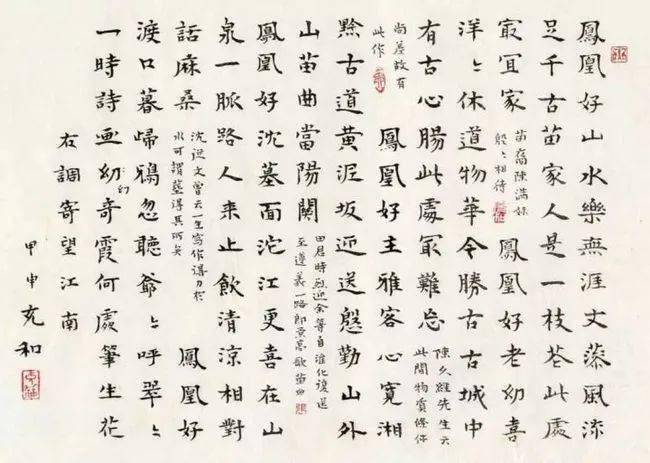 鳳凰好山水樂無涯文藻風流
足千古苗家人是一枝花此處
最宜家
苗裔陳滿妹
殷〻相待
鳳凰好老幼喜
洋〻休道物華今勝古古城中
有古心腸此處最難忘
陳久雄先生云
此間物質條件
尚差故有
此作
鳳凰好主雅客心寬湘
黔古道黄泥坂迎送慇勤山外
山苗曲當陽關
田君時烈迎余等自淮化復送
至遵義一路郎高歌苗曲
鳳凰好沈墓面沱江更喜在山
泉一脈路人來止飲清涼相對
話麻桑
沈從文曾云一生寫作得力於
水可謂墓得其所矣
鳳凰好
渡口暮歸鴉忽聽爺〻呼翠〻
一時詩画幼奇霞何處筆生花
幻
右調寄望江南
甲申充和